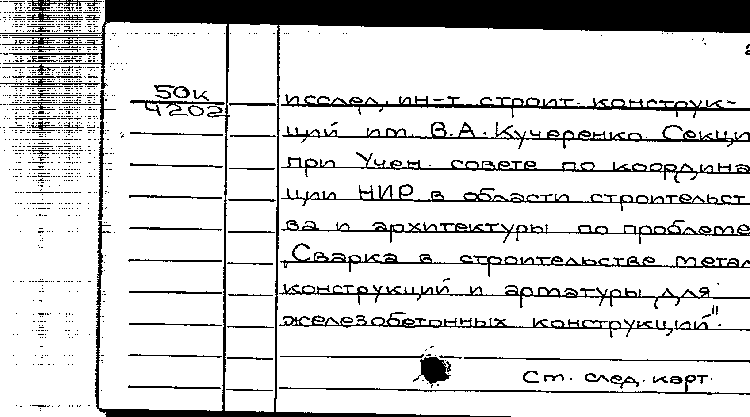 50к
4202
исслед. ин-т строит. конструк-
ций им. В.А. Кучеренко Секци
при Учен. совете по координа
ции НИР в области строительст
ва и архитектуры по проблеме
„Сварка в строительстве метал
конструкций и арматуры для
железобетонных конструкций".
См. след. карт.